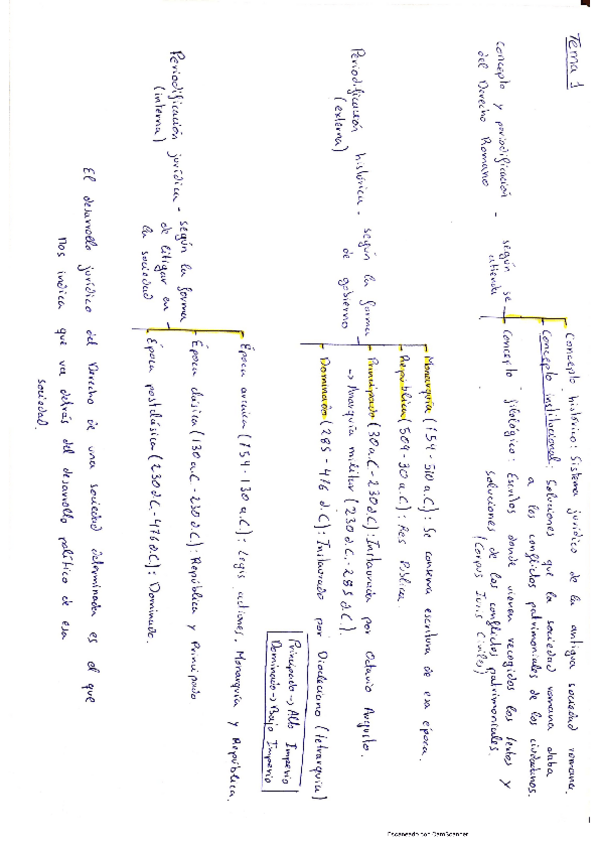 Tema 1
Concepto y periodificación
del Derecho Romano -
según se
atienda
Concepto histórico: Sistema jurídico de la antigua sociedad romana.
Concepto institucional: Soluciones que la sociedad romana daba
a los conflictos patrimoniales de los ciudadanos.
Concepto filológico: Escritos donde vienen recogidos los textos y
soluciones de los conflictos patrimoniales.
(Corpus Iuris Civiles)
Periodificación histórica - según la forma
(externa) de gobierno
Monarquía (754-510 a.C): Se conserva escritura de esa época.
República (509-30 a.C): Res Pública
Principado (30 a.C-230 d.C): Instaurado por Octavio Augusto.
→ Anarquía militar (230 d.C.-285 d.C.).
Dominado (285-476 d.C): Instaurado por Diocleciano (tetrarquía)
Principado → Alto Imperio
Dominado → Bajo Imperio
Periodificación jurídica - según la forma
(interna) de litigar en
la sociedad
Época arcaica (754-130 a.C): Legis actiones. Monarquía y República.
Época clásica (130 a.C-230 d.C): República y Principado
Época postclásica (230 d.C-476 d.C): Dominado.
El desarrollo jurídico del Derecho de una sociedad determinada es el que
nos indica que va detrás del desarrollo político de esa
sociedad.
Escaneado con CamScanner